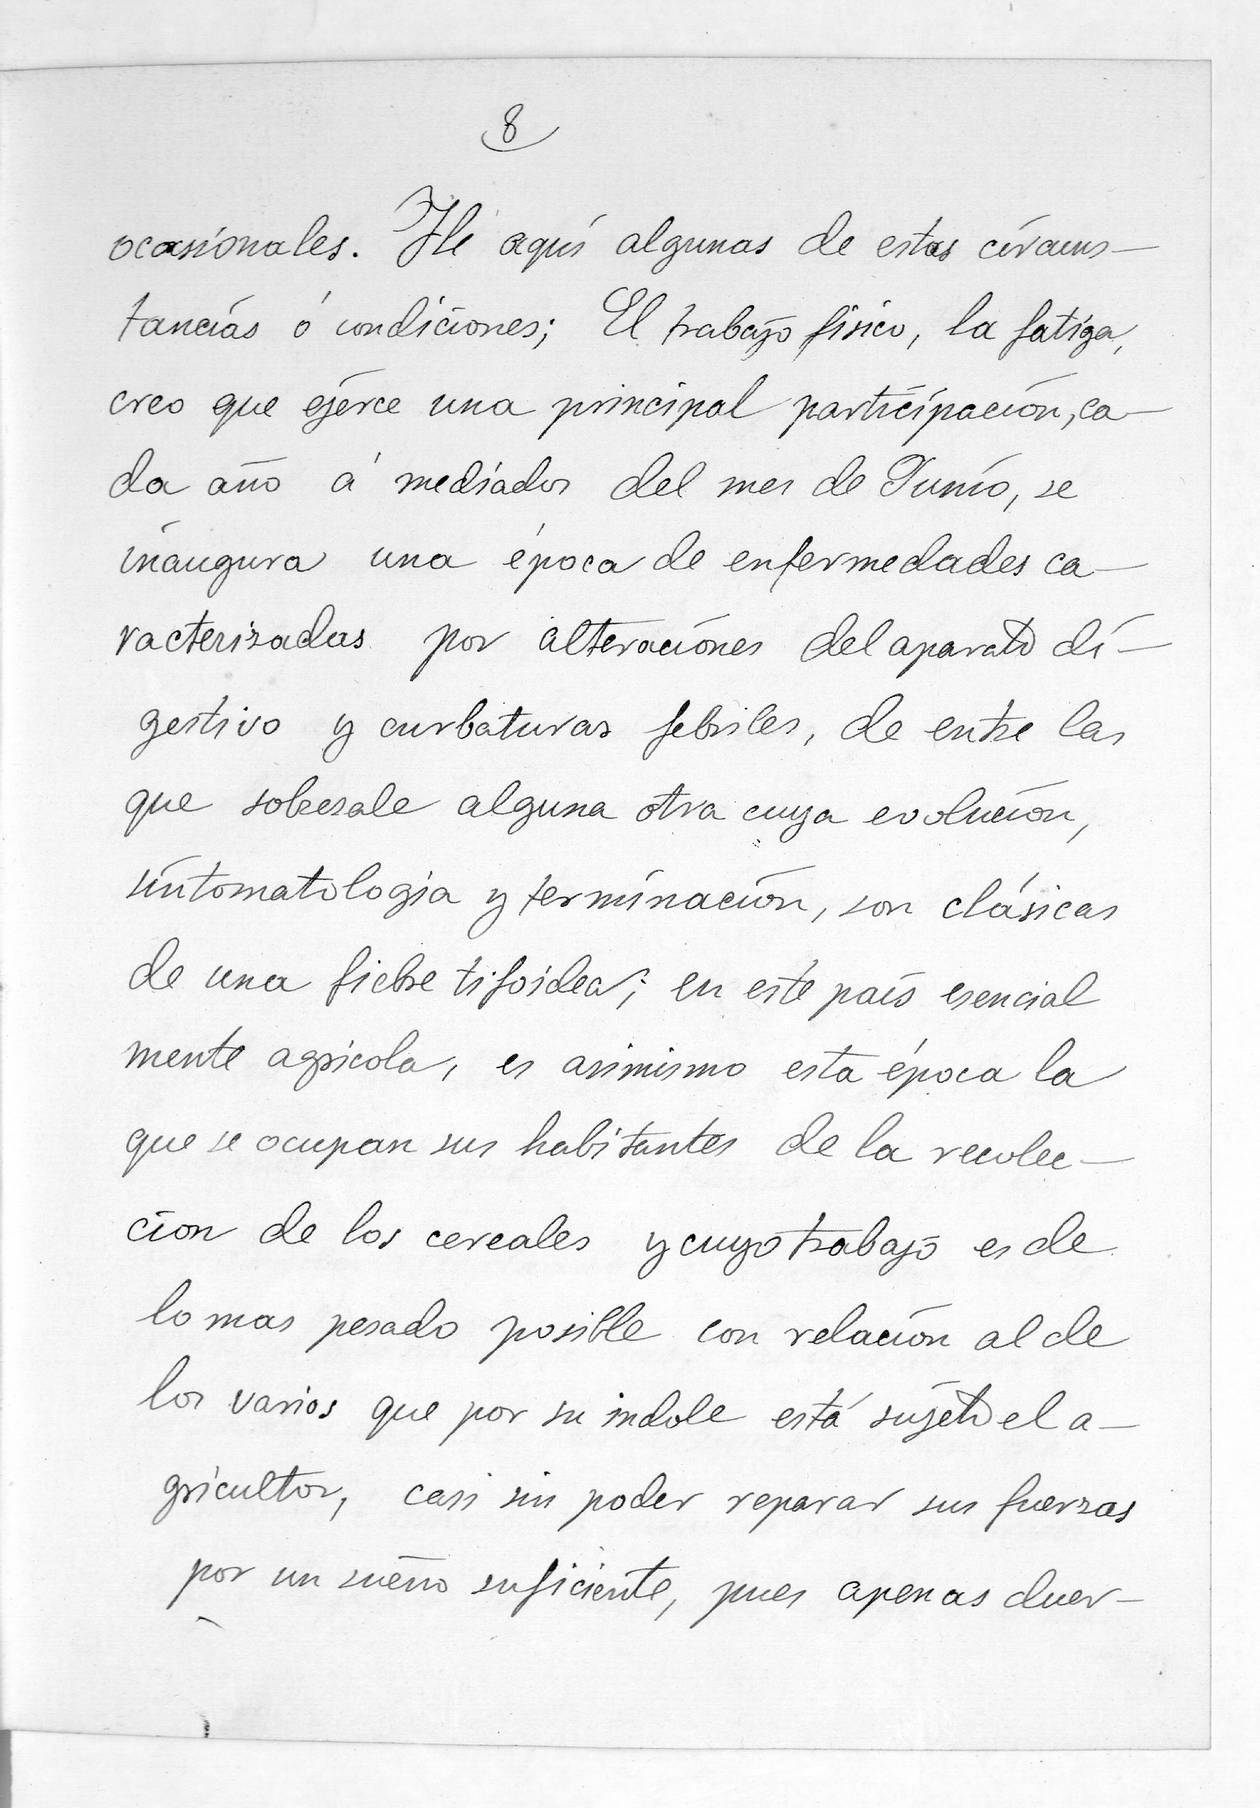 8
ocasionales. Hé aquí algunas de estas circuns-
tancias ó condiciones; El trabajo físico, la fatiga,
creo que ejerce una principal participación, ca-
da año á mediados del mes de Junio, se
inaugura una época de enfermedades ca-
racterizadas por alteraciones del aparato di-
gestivo y curbaturas febriles, de entre las
que sobresale alguna otra cuya evolución,
sintomatologia y terminación, son clásicas
de una fiebre tifoidea; en este pais esencial
mente agricola, es asimismo esta época la
que se ocupan sus habitantes de la recolec-
cion de los cereales y cuyo trabajo es de
lo mas pesado posible con relación al de
los varios que por su indole está sujeto el a-
gricultor, casi sin poder reparar sus fuerzas
por un sueño suficiente, pues apenas duer-